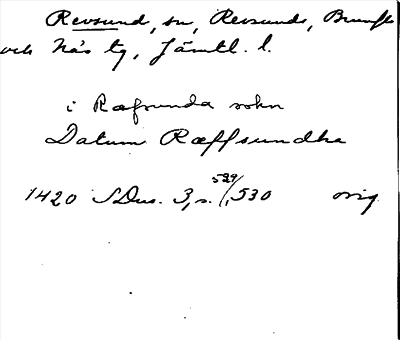 Revsund, sn, Revsunds, Brunflo
och Näs tg, Jämtl. l.
i Ræfsunda sokn
Datum Ræffsundha
1420 SDns. 3, s. 529/, 530 orig